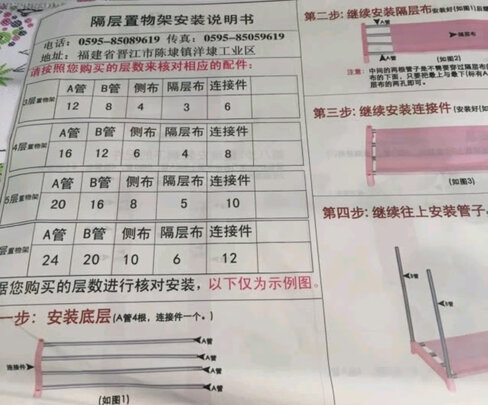 隔层置物架安装说明书
电话：0595-85089619 传真：0595-85059619
地址：福建省晋江市陈埭镇洋埭工业区
请按照您购买的层数来核对相应的配件：
3层置物架 A管 B管 侧布 隔层布 连接件
12 8 4 3 6
4层置物架 A管 B管 侧布 隔层布 连接件
16 12 6 4 8
5层置物架 A管 B管 侧布 隔层布 连接件
20 16 8 5 10
层置物架 A管 B管 侧布 隔层布 连接件
24 20 10 6 12
据您购买的层数进行核对安装，以下仅为示例图。
一步：安装底层(A管4根，连接件一个。)
A管
A管
连接件
A管
A管
(如图1)
第二步：继续安装隔层布
隔层布
(如图2)
注意：中间的两根管子是不需要穿过隔层
布的下面，只要把最上与最下(标有A
层布的两孔即可。
第三步：继续安装连接件(安装好(如
(如图3)
第四步：继续往上安装管子。
B管
B管